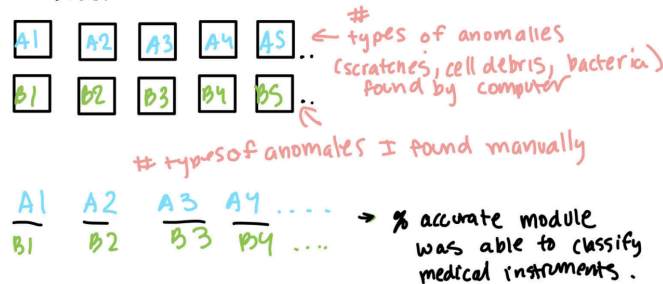 #
A1 A2 A3 A4 A5 .. ← types of anomalies
(scratches, cell debris, bacteria)
B1 B2 B3 B4 B5 .. found by computer
# types of anomates I found manually
A1 A2 A3 A4 ....
B1 B2 B3 B4 ....
→ % accurate module
was able to classify
medical instruments.